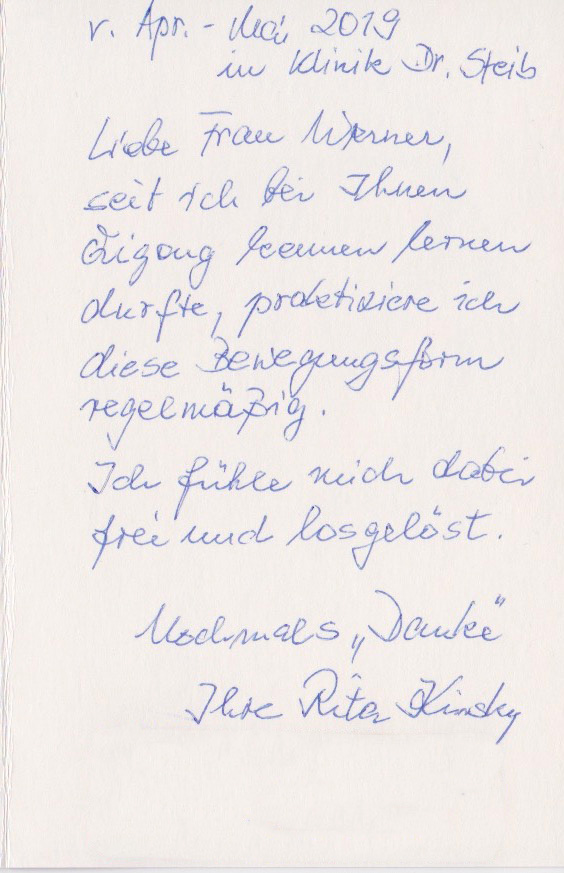 v. Apr. - Mai 2019
in Klinik Dr. Steib
Liebe Frau Werner,
seit ich bei Ihnen
Qigong kennen lernen
durfte, praktiziere ich
diese Bewegungsform
regelmäßig.
Ich fühle mich dabei
frei und losgelöst.
Nochmals „Danke"
Ihre Rita Kimsky